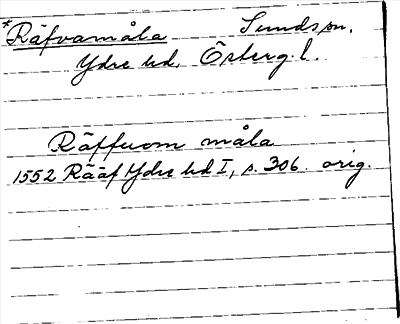 *Räfvamåla Sunds sn.
Ydre hd. Östergl.
Räffuom måla
1552 Rääf Ydre hd I, s. 306. orig.